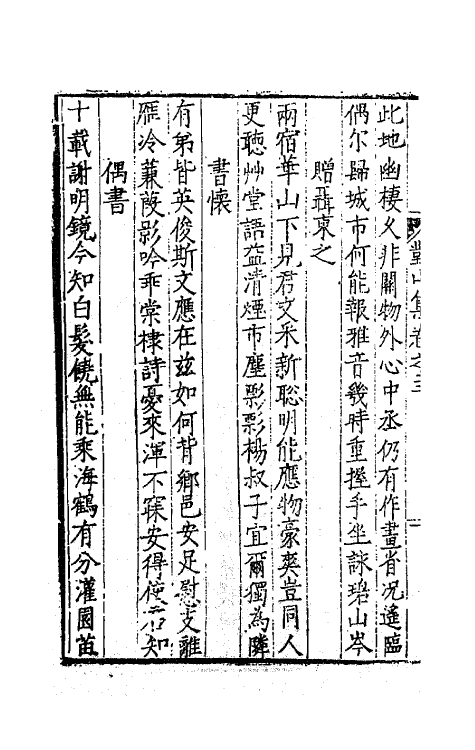 對山集卷之三
此地幽棲久非關物外心中丞仍有作畫省况遙臨
偶尔歸城市何能報雅音幾時重握手坐詠碧山岑
贈聶東之
兩宿華山下見君文采新聰明能應物豪爽豈同人
更聽艸堂語益清煙市塵彩彩楊叔子宜爾獨為隣
書懷
有弟皆英俊斯文應在茲如何背鄉邑安足慰支離
鴈冷蒹葭影吟乖棠棣詩憂來渾不寐安得使君知
偶書
十載謝明鏡今知白髮饒無能乘海鶴有分灌園苗